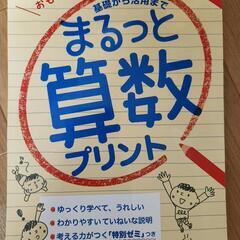 おも
基礎から活用まで
まるっと
算数
プリント
ゆっくり学べて、うれしい
わかりやすい ていねいな説明
考える力がつく「特別ゼミ」つき